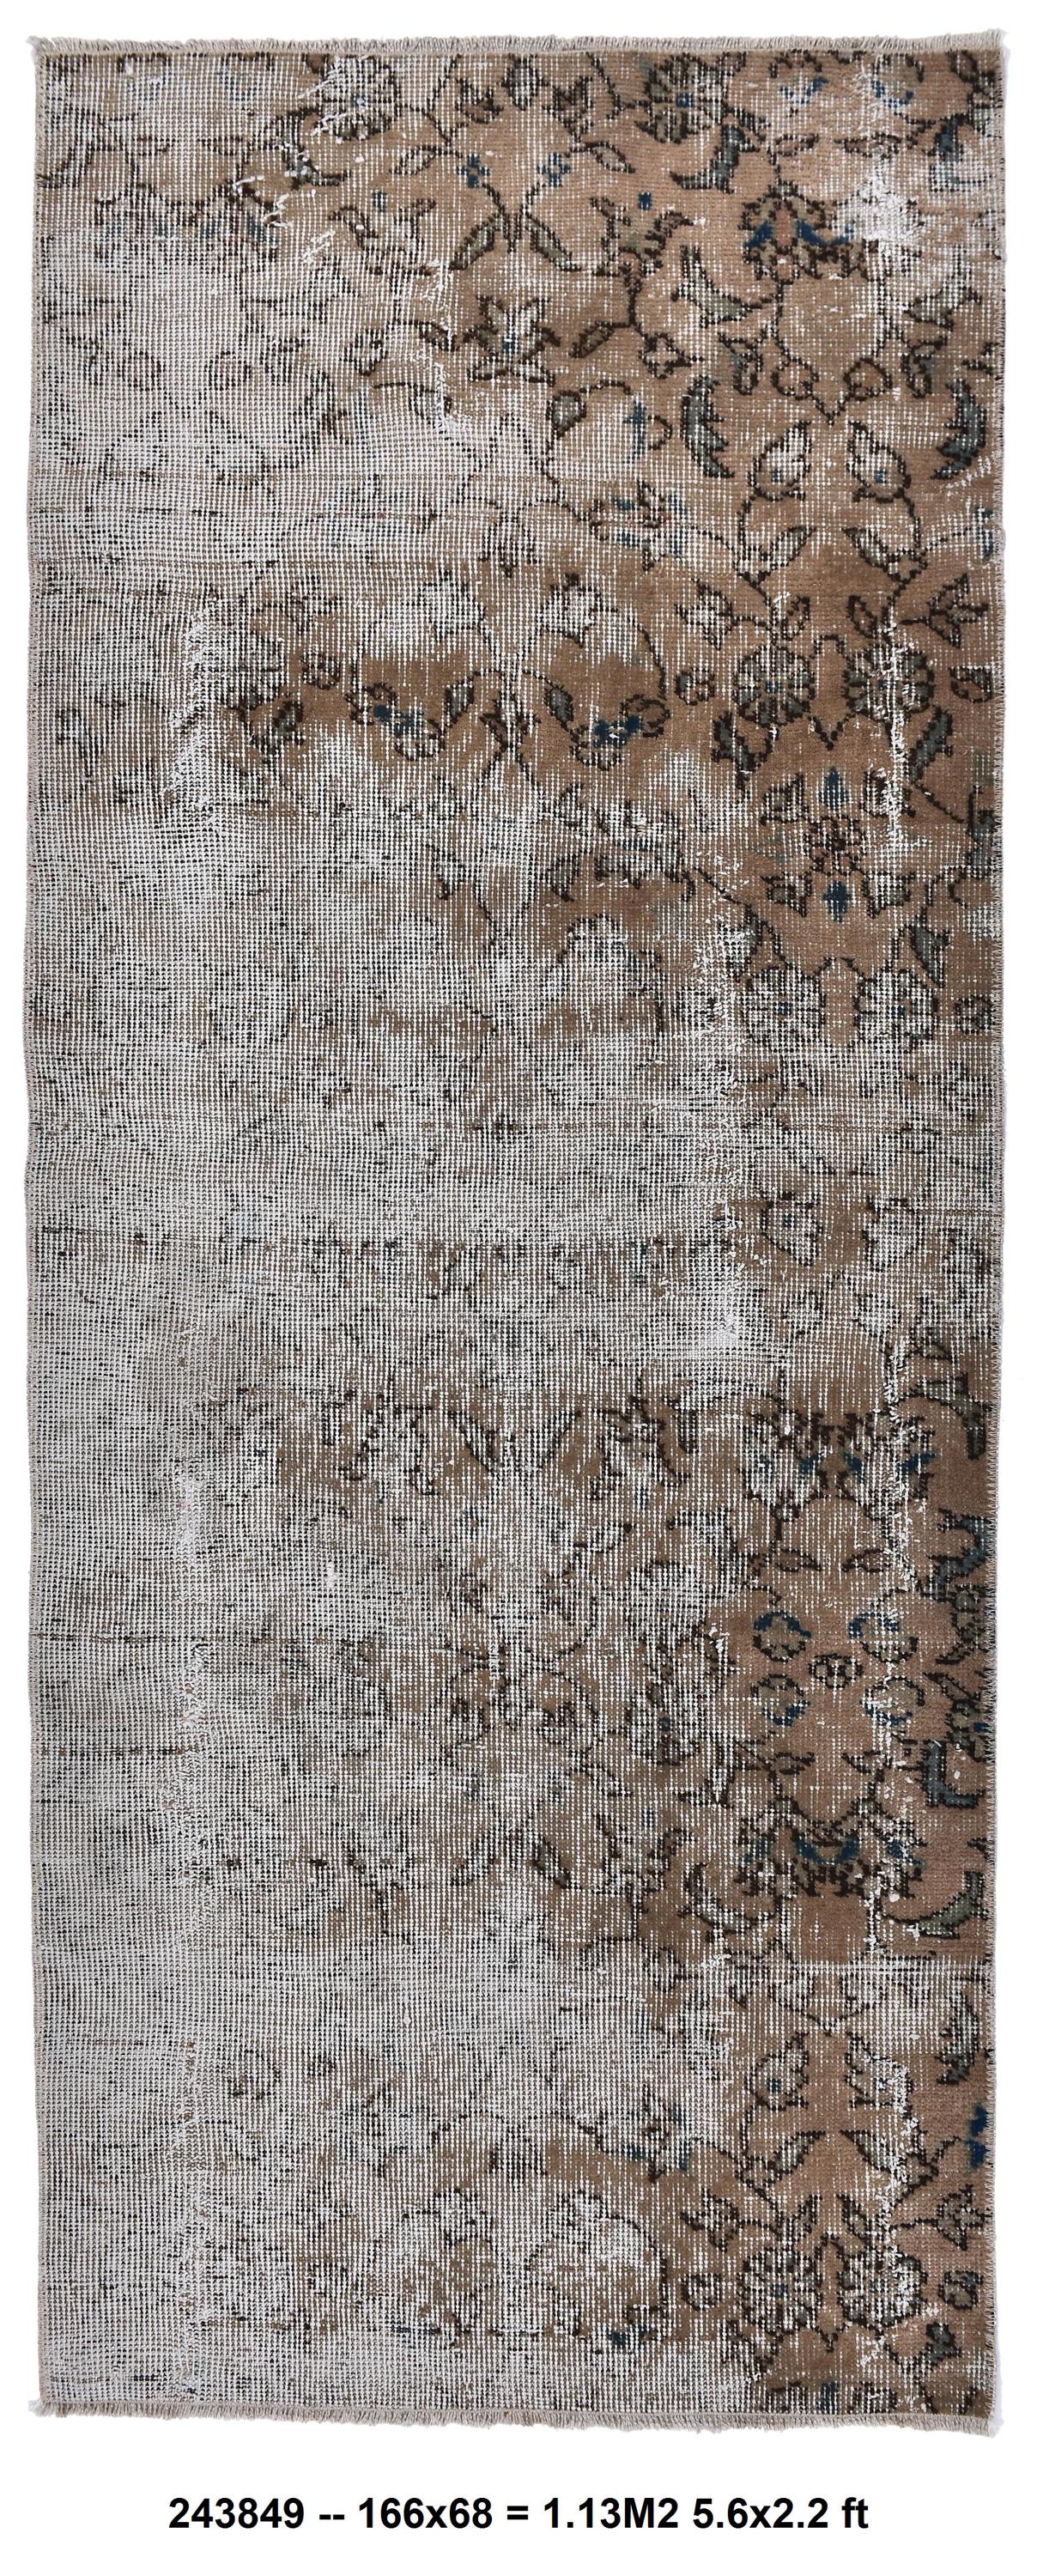 243849 -- 166x68 = 1.13M2 5.6x2.2 ft